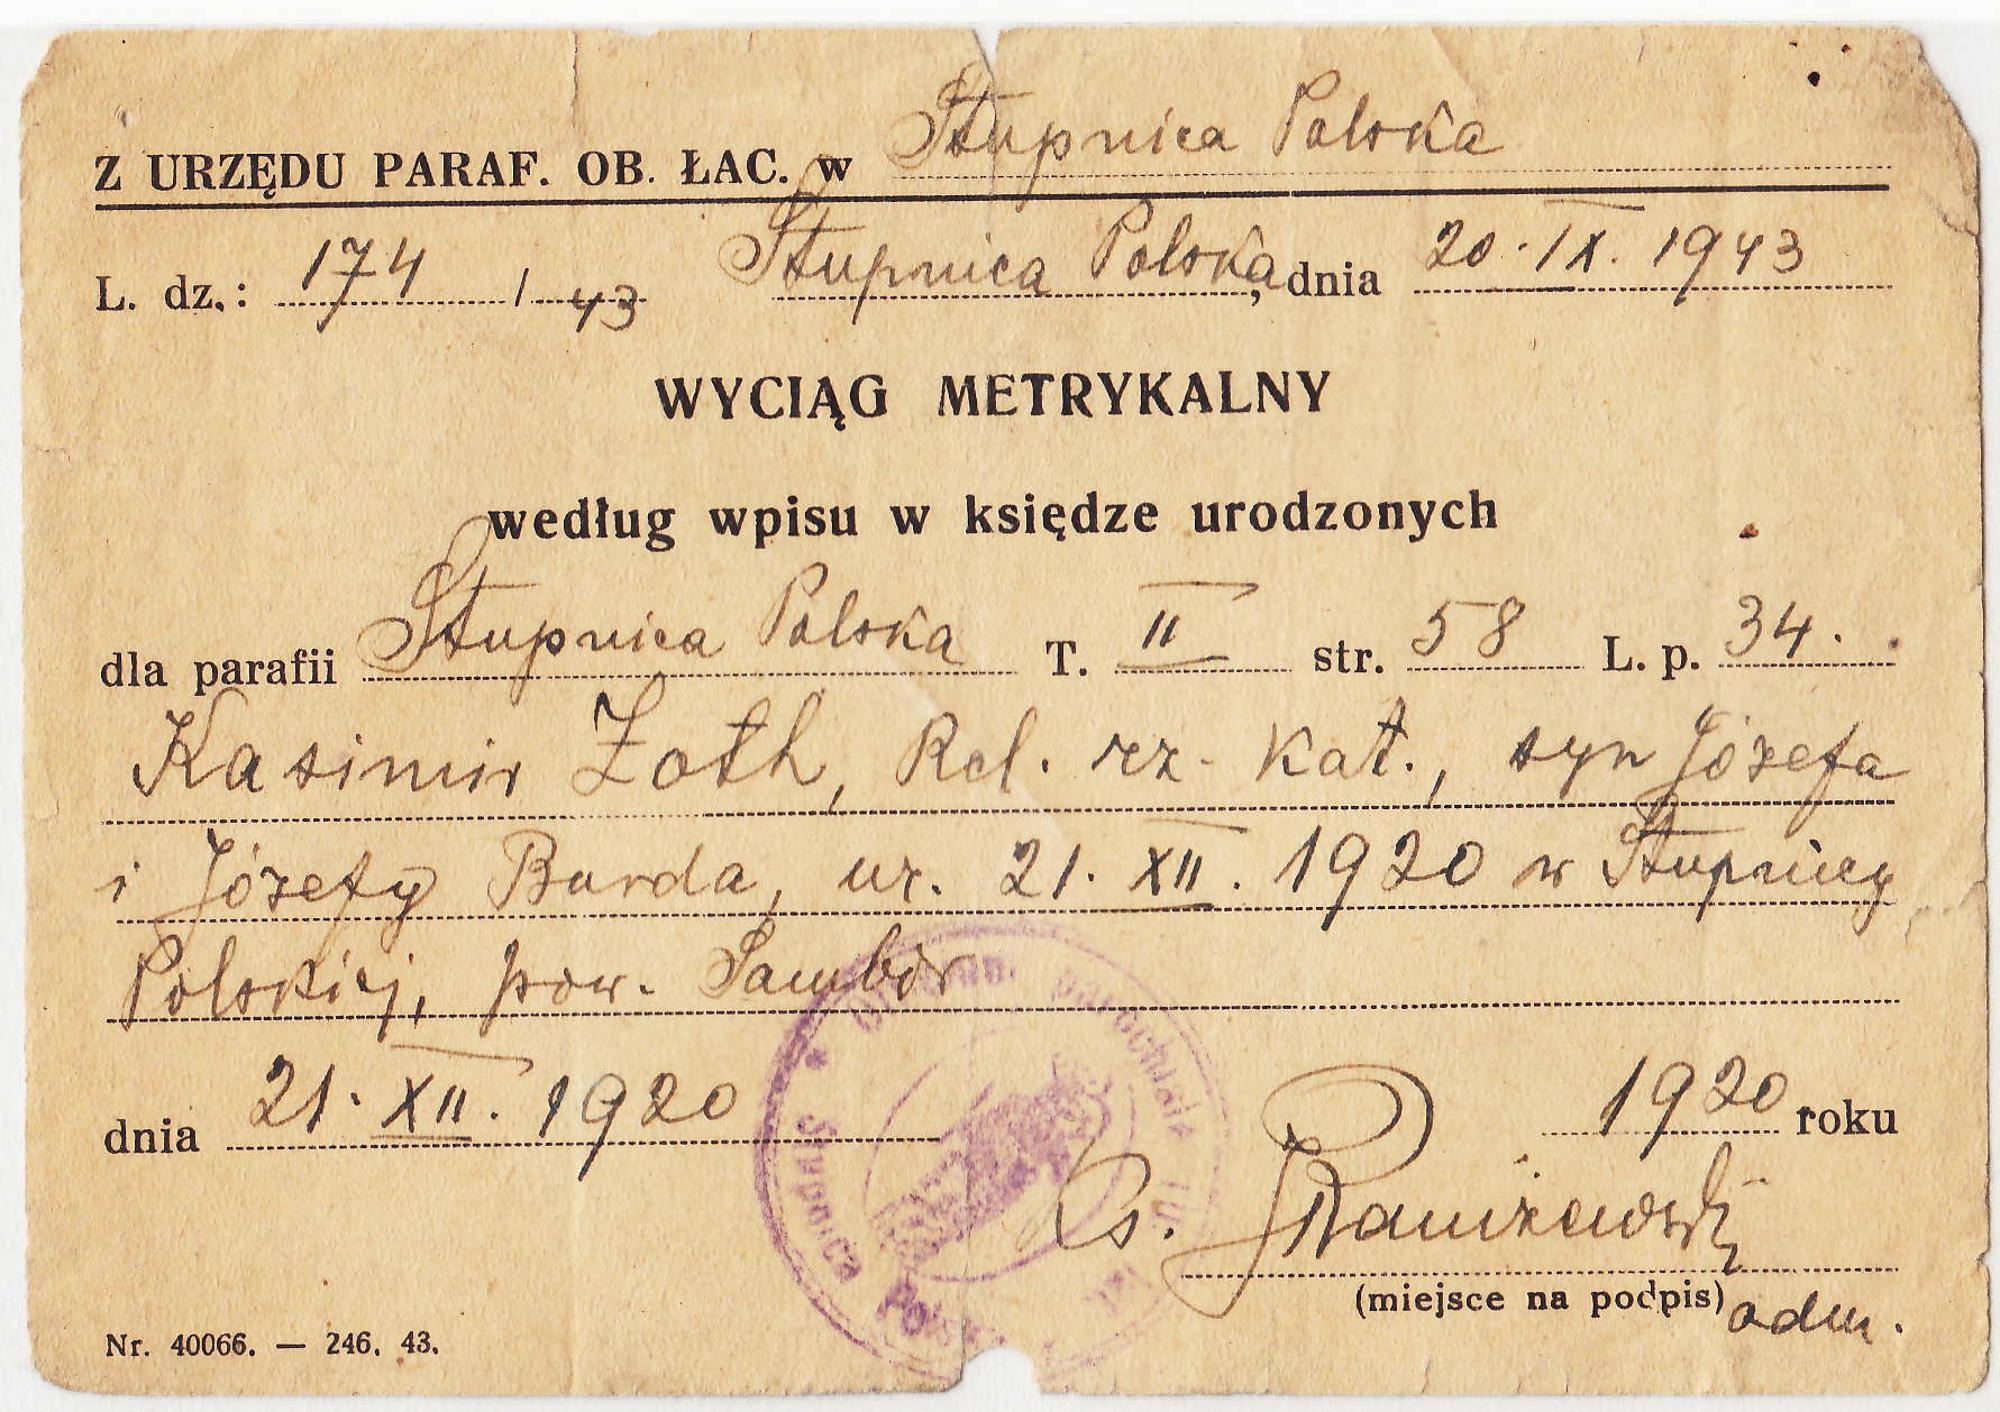 Z URZĘDU PARAF. OB. ŁAC. w Stupnica Polska
L. dz.: 174 / 43 Stupnica Polska, dnia 20. IX. 1943
WYCIĄG METRYKALNY
według wpisu w księdze urodzonych
dla parafii Stupnica Polska T. II str. 58 L. p. 34.
Kasimir Zoth, Rel. rz. kat., syn Józefa
i Józefy Burda, ur. 21. XII. 1920 w Stupnicy
Polskiej, pow. Sambor
dnia 21. XII. 1920 1920 roku
Ks. Raniżewski
(miejsce na podpis) adm.
Stupnica Pols
Nr. 40066. — 246. 43.